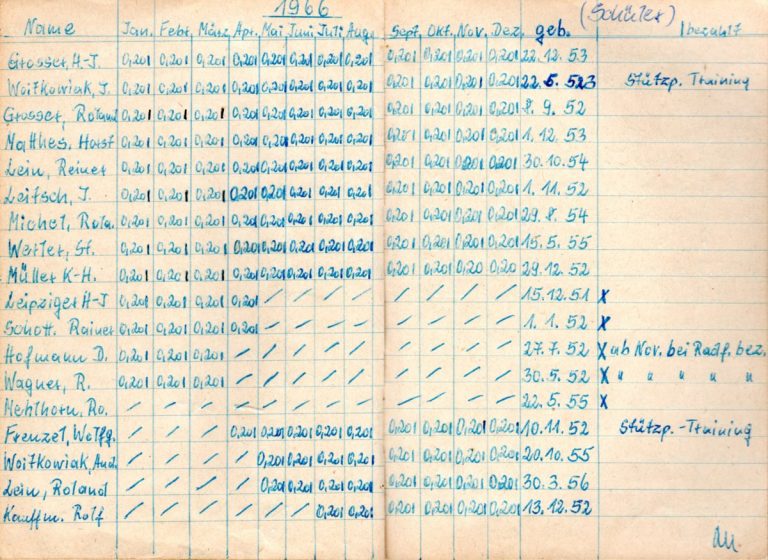 1966 (Schüler)
Name Jan. Febr. März Apr. Mai Juni Juli Aug. Sept. Okt. Nov. Dez. geb. bezahlt
Grosser, H-J. 0,20 0,20 0,20 0,20 0,20 0,20 0,20 0,20 0,20 0,20 0,20 0,20 22.12.53
Woitkowiak, J. 0,20 0,20 0,20 0,20 0,20 0,20 0,20 0,20 0,20 0,20 0,20 0,20 22.5.523 Stützp. Training
Grosser, Roland 0,20 0,20 0,20 0,20 0,20 0,20 0,20 0,20 0,20 0,20 0,20 0,20 8.9.52
Matthes, Horst 0,20 0,20 0,20 0,20 0,20 0,20 0,20 0,20 0,20 0,20 0,20 0,20 1.12.53
Lein, Reiner 0,20 0,20 0,20 0,20 0,20 0,20 0,20 0,20 0,20 0,20 0,20 0,20 30.10.54
Leitsch, J. 0,20 0,20 0,20 0,20 0,20 0,20 0,20 0,20 0,20 0,20 0,20 0,20 1.11.52
Michel, Rola. 0,20 0,20 0,20 0,20 0,20 0,20 0,20 0,20 0,20 0,20 0,20 0,20 29.8.54
Werler, St. 0,20 0,20 0,20 0,20 0,20 0,20 0,20 0,20 0,20 0,20 0,20 0,20 15.5.55
Müller K-H. 0,20 0,20 0,20 0,20 0,20 0,20 0,20 0,20 0,20 0,20 0,20 0,20 29.12.52
Leipziger H-J 0,20 0,20 0,20 0,20 / / / / / / / / 15.12.51 X
Schott. Rainer 0,20 0,20 0,20 0,20 / / / / / / / / 1.1.52 X
Hofmann D. 0,20 0,20 0,20 / / / / / / / / / 27.7.52 X ab Nov. bei Radf. bez.
Wagner, R. 0,20 0,20 0,20 / / / / / / / / / 30.5.52 X " " " " "
Mehlhorn, Ro. / / / / / / / / / / / / 22.5.55 X
Frenzel, Wolfg. / / / 0,20 0,20 0,20 0,20 0,20 0,20 0,20 0,20 0,20 10.11.52 Stützp.-Training
Woitkowiak, And. / / / / 0,20 0,20 0,20 0,20 0,20 0,20 0,20 0,20 20.10.55
Lein, Roland / / / / 0,20 0,20 0,20 0,20 0,20 0,20 0,20 0,20 30.3.56
Kauffm. Rolf / / / / / / 0,20 0,20 0,20 0,20 0,20 0,20 13.12.52